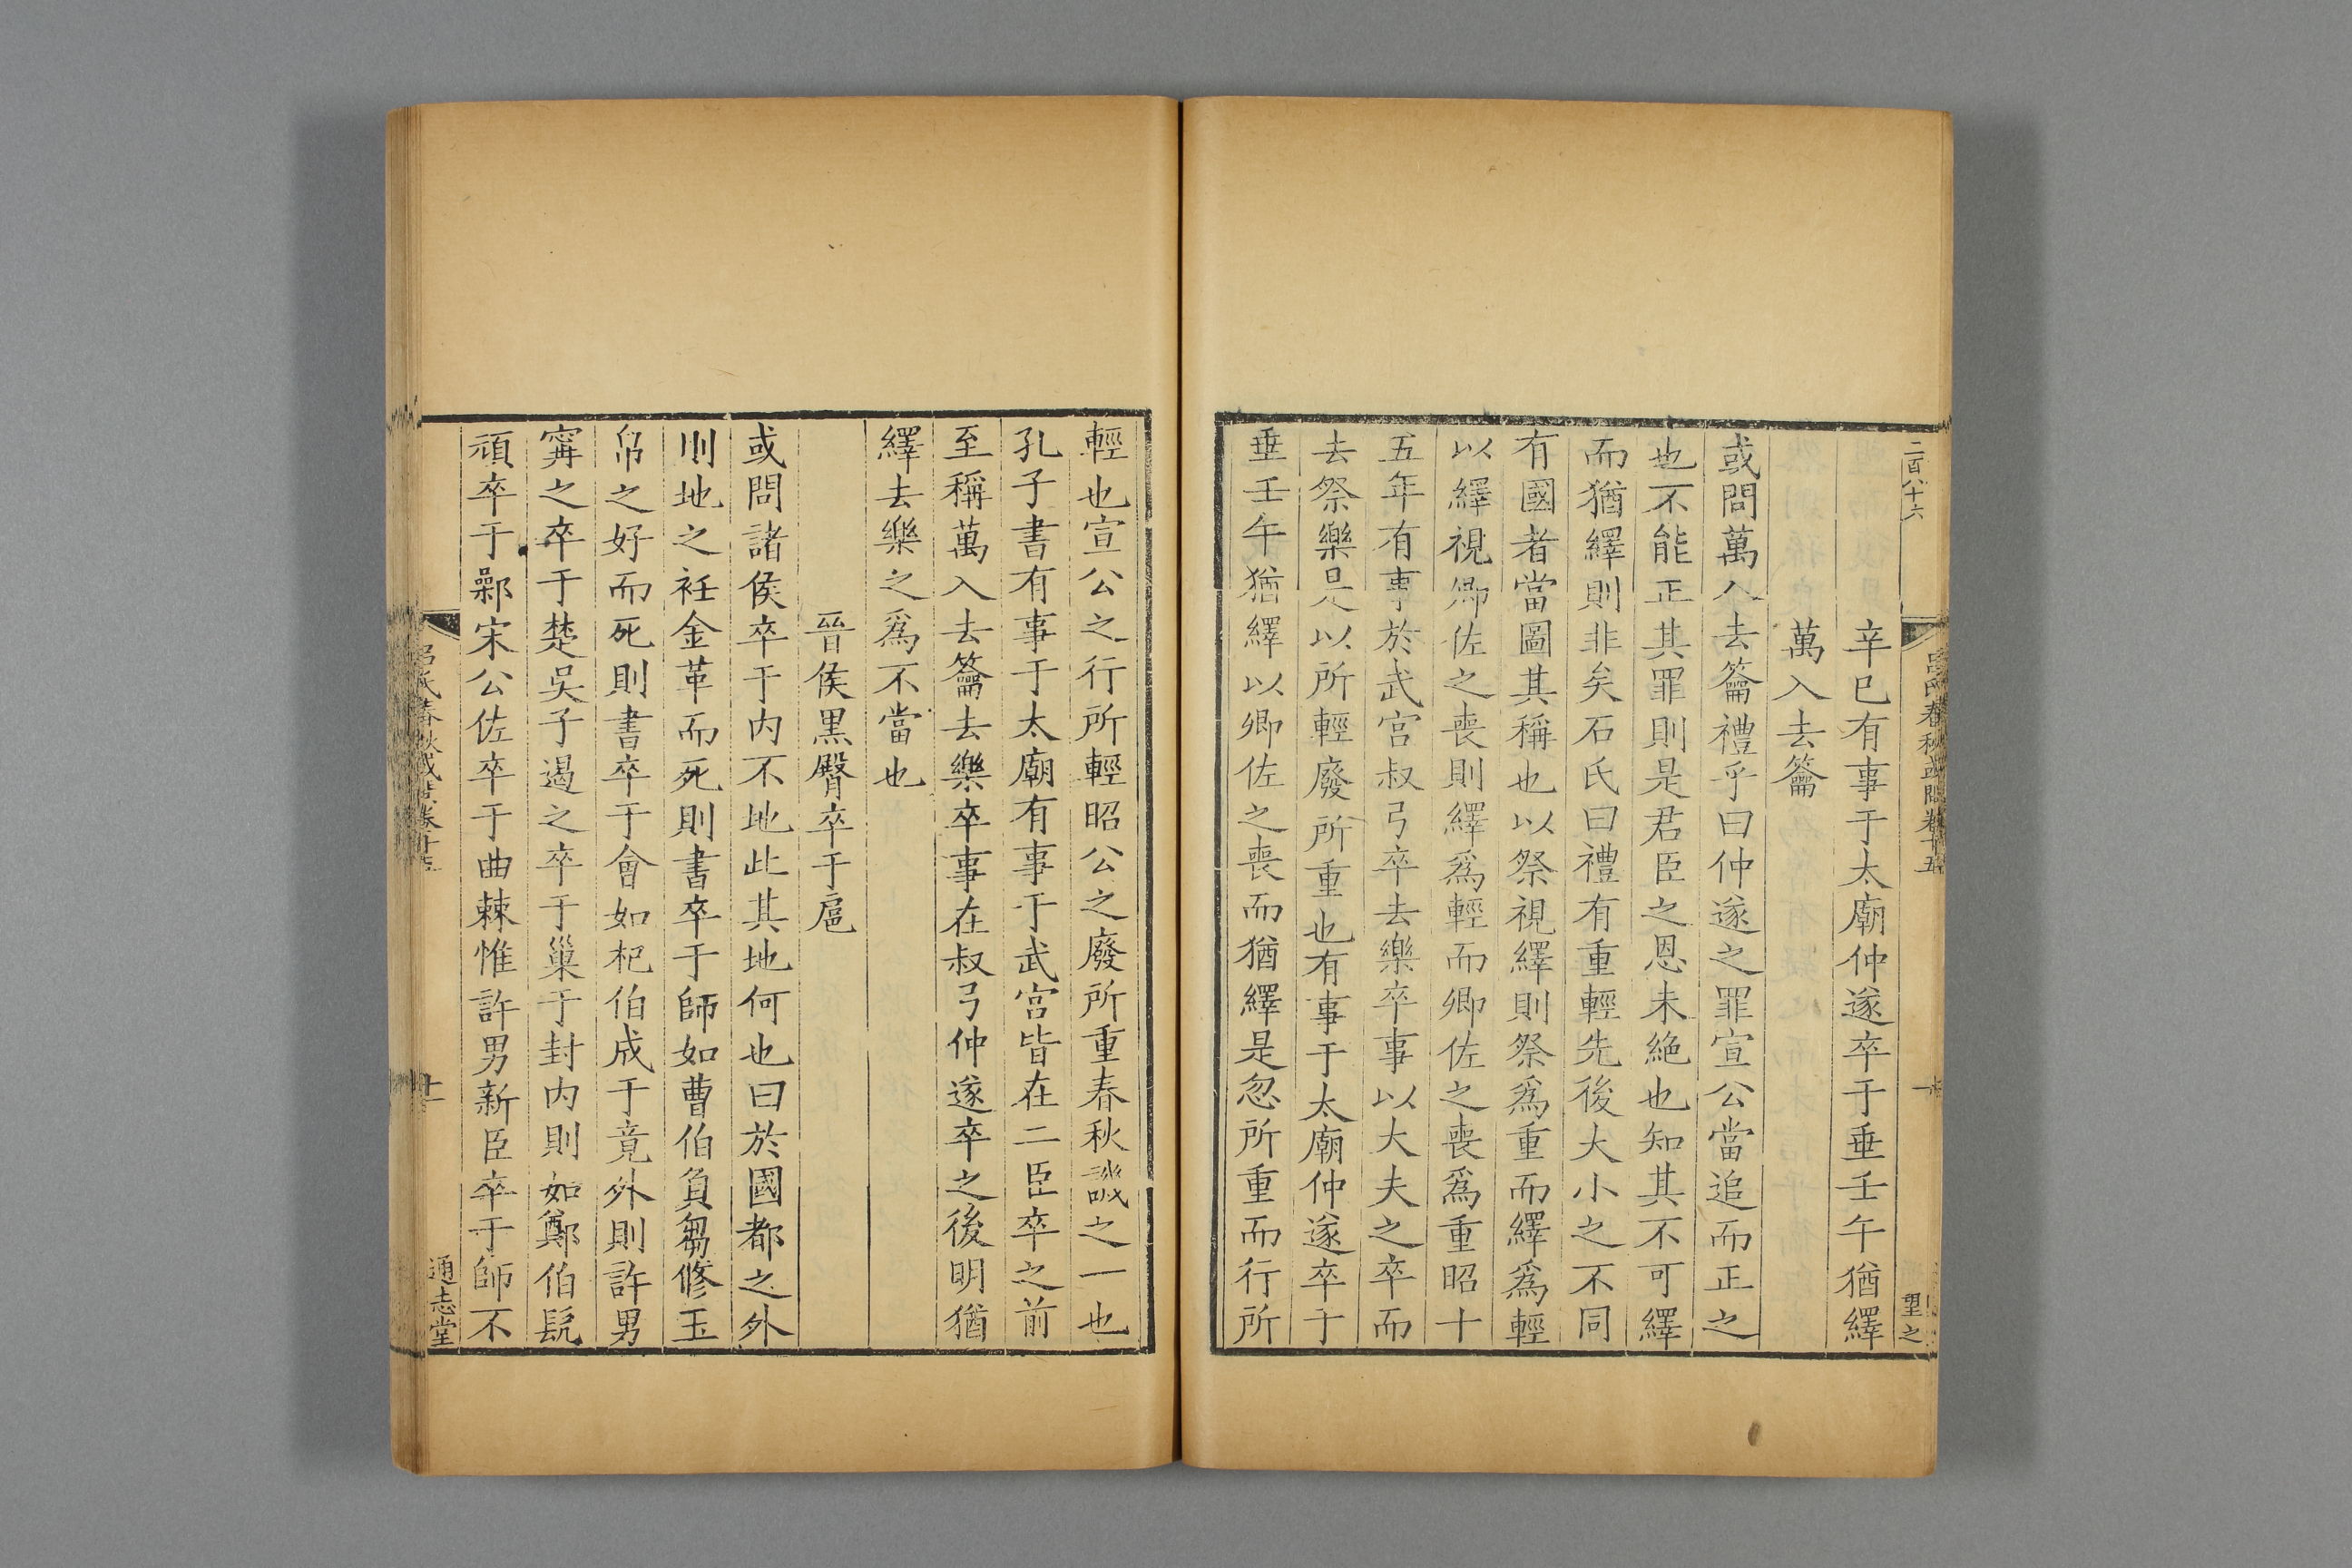 二百八十六
辛巳有事于太廟仲遂卒于垂壬午猶繹
萬入去籥
或問萬入去籥禮乎曰仲遂之罪宣公當追而正之
也不能正其罪則是君臣之恩未絶也知其不可繹
而猶繹則非矣石氏曰禮有重輕先後大小之不同
有國者當圖其稱也以祭視繹則祭爲重而繹爲輕
以繹視卿佐之喪則繹爲輕而卿佐之喪爲重昭十
五年有事於武宮叔弓卒去樂卒事以大夫之卒而
去祭樂是以所輕廢所重也有事于太廟仲遂卒于
垂壬午猶繹以卿佐之喪而猶繹是忽所重而行所
輕也宣公之行所輕昭公之廢所重春秋譏之一也
孔子書有事于太廟有事于武宮皆在二臣卒之前
至稱萬入去籥去樂卒事在叔弓仲遂卒之後明猶
繹去樂之爲不當也
晉侯黑臀卒于扈
或問諸侯卒于内不地此其地何也曰於國都之外
則地之衽金革而死則書卒于師如曹伯負芻修玉
帛之好而死則書卒于會如杞伯成于竟外則許男
甯之卒于楚吳子遏之卒于巢于封内則如鄭伯髡
頑卒于鄵宋公佐卒于曲棘惟許男新臣卒于師不
通志堂